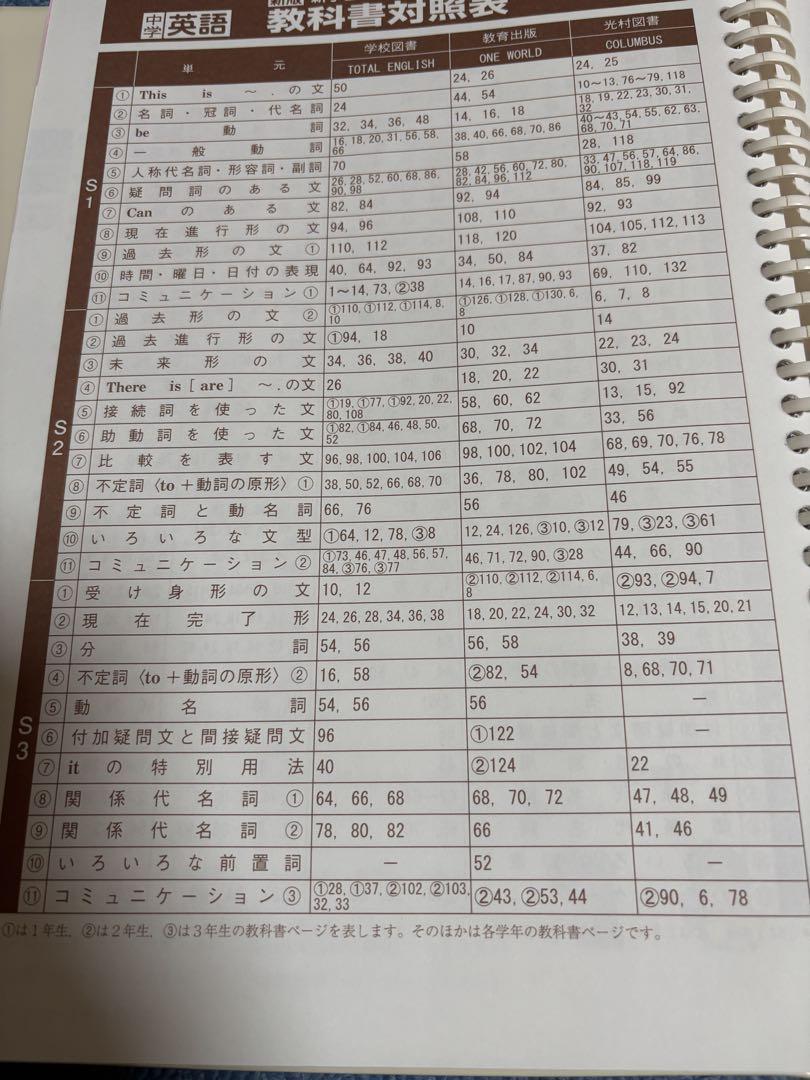 中学 英語 教科書対照表
単元 学校図書 TOTAL ENGLISH 教育出版 ONE WORLD 光村図書 COLUMBUS
S1
① This is ～. の文 50 24, 26 24, 25
② 名詞・冠詞・代名詞 24 44, 54 10～13, 76～79, 118
③ be動詞 32, 34, 36, 48 14, 16, 18 18, 19, 22, 23, 30, 31, 32
④ 一般動詞 16, 18, 20, 31, 56, 58, 66 38, 40, 66, 68, 70, 86 40～43, 54, 55, 62, 63, 68, 70, 71
⑤ 人称代名詞・形容詞・副詞 70 58 28, 118
⑥ 疑問詞のある文 26, 28, 52, 60, 68, 86, 90, 98 28, 42, 56, 60, 72, 80, 82, 84, 96, 112 33, 47, 56, 57, 64, 86, 90, 107, 118, 119
⑦ Canのある文 82, 84 92, 94 84, 85, 99
⑧ 現在進行形の文 94, 96 108, 110 92, 93
⑨ 過去形の文① 110, 112 118, 120 104, 105, 112, 113
⑩ 時間・曜日・日付の表現 40, 64, 92, 93 34, 50, 84 37, 82
⑪ コミュニケーション① 1～14, 73, ②38 14, 16, 17, 87, 90, 93 69, 110, 132
S2
① 過去形の文② ①110, ①112, ①114, 8, 10 ①126, ①128, ①130, 6, 8 6, 7, 8
② 過去進行形の文 ①94, 18 10 14
③ 未来形の文 34, 36, 38, 40 30, 32, 34 22, 23, 24
④ There is [are] ～. の文 26 18, 20, 22 30, 31
⑤ 接続詞を使った文 ①19, ①77, ①92, 20, 22, 80, 108 58, 60, 62 13, 15, 92
⑥ 助動詞を使った文 ①82, ①84, 46, 48, 50, 52 68, 70, 72 33, 56
⑦ 比較を表す文 96, 98, 100, 104, 106 98, 100, 102, 104 68, 69, 70, 76, 78
⑧ 不定詞〈to＋動詞の原形〉① 38, 50, 52, 66, 68, 70 36, 78, 80, 102 49, 54, 55
⑨ 不定詞と動名詞 66, 76 56 46
⑩ いろいろな文型 ①64, 12, 78, ③8 12, 24, 126, ③10, ③12 79, ③23, ③61
⑪ コミュニケーション② ①73, 46, 47, 48, 56, 57, 84, ③76, ③77 46, 71, 72, 90, ③28 44, 66, 90
S3
① 受け身形の文 10, 12 ②110, ②112, ②114, 6, 8 ②93, ②94, 7
② 現在完了形 24, 26, 28, 34, 36, 38 18, 20, 22, 24, 30, 32 12, 13, 14, 15, 20, 21
③ 分詞 54, 56 56, 58 38, 39
④ 不定詞〈to＋動詞の原形〉② 16, 58 ②82, 54 8, 68, 70, 71
⑤ 動名詞 54, 56 56 －
⑥ 付加疑問文と間接疑問文 96 ①122 －
⑦ itの特別用法 40 ②124 22
⑧ 関係代名詞① 64, 66, 68 68, 70, 72 47, 48, 49
⑨ 関係代名詞② 78, 80, 82 66 41, 46
⑩ いろいろな前置詞 － 52 －
⑪ コミュニケーション③ ①28, ①37, ②102, ②103, 32, 33 ②43, ②53, 44 ②90, 6, 78
①は1年生，②は2年生，③は3年生の教科書ページを表します。そのほかは各学年の教科書ページです。